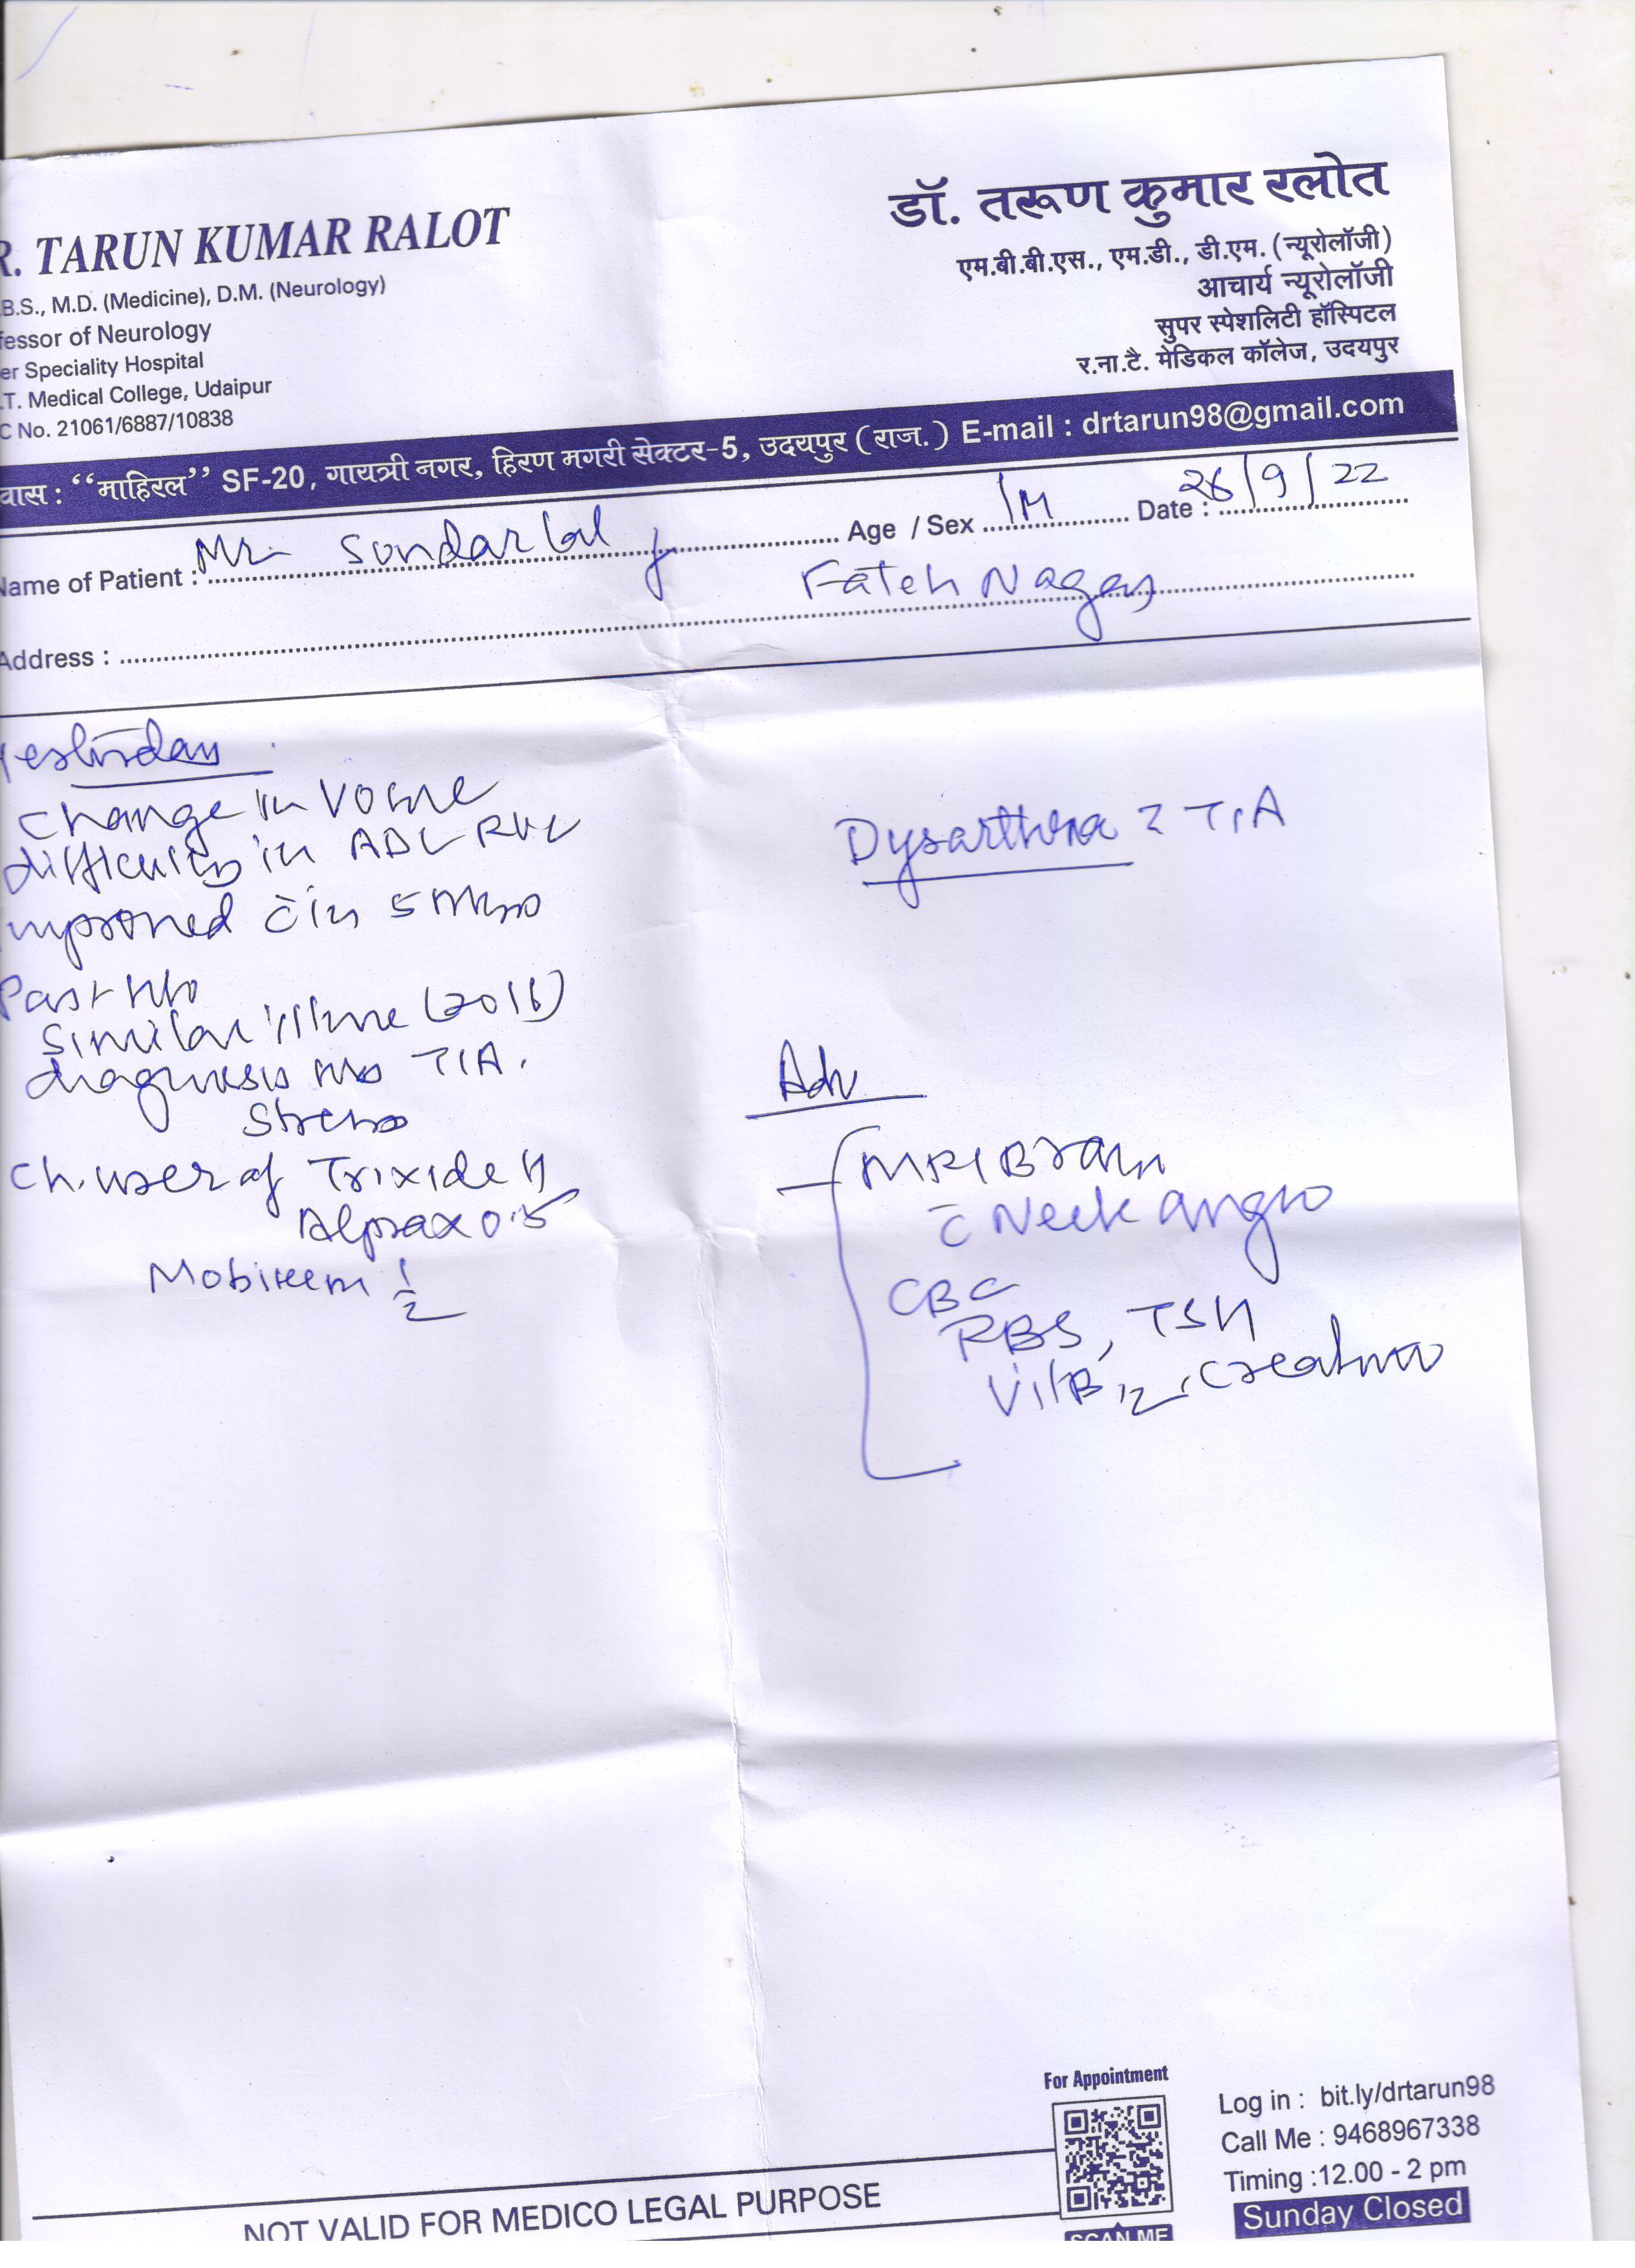 R. TARUN KUMAR RALOT
B.S., M.D. (Medicine), D.M. (Neurology)
fessor of Neurology
er Speciality Hospital
.T. Medical College, Udaipur
C No. 21061/6887/10838
डॉ. तरूण कुमार रलोत
एम.बी.बी.एस., एम.डी., डी.एम. (न्यूरोलॉजी)
आचार्य न्यूरोलॉजी
सुपर स्पेशलिटी हॉस्पिटल
र.ना.टै. मेडिकल कॉलेज, उदयपुर
वास : ‘‘माहिरल’’ SF-20, गायत्री नगर, हिरण मगरी सेक्टर-5, उदयपुर (राज.) E-mail : drtarun98@gmail.com
Name of Patient : Mr Sondar lal Age / Sex /M Date : 26/9/22
Address : Fateh Nagar
Yesterday
change in voice
difficulty in
improved c̄in 5
Past H/o
Similar illne (2016)
diagnosis TIA.
Stress
Ch. user of Trixide H
Alprax 0.5
Mobikem 1/2
Dysarthria ? TIA
Adv
MRI Brain
c̄ Neck angio
CBC
RBS, TSH
Vit B12, Creatinine
For Appointment
SCAN ME
Log in : bit.ly/drtarun98
Call Me : 9468967338
Timing :12.00 - 2 pm
Sunday Closed
NOT VALID FOR MEDICO LEGAL PURPOSE